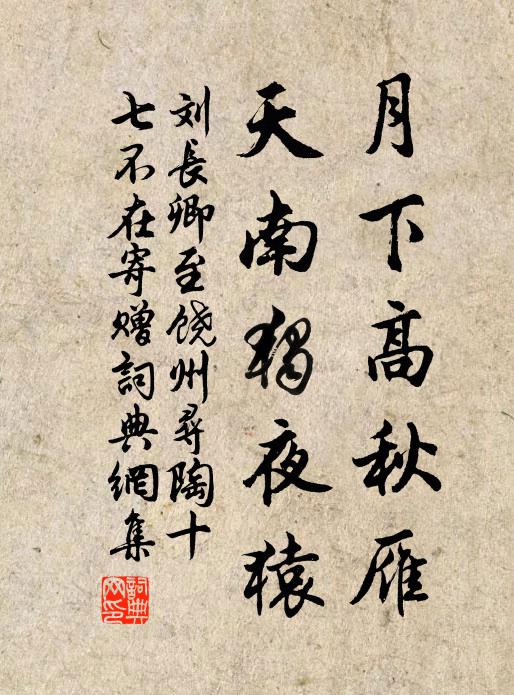 月下高秋雁
天南獨夜猿
刘長卿至饶州尋陶十
七不在寄赠詞典網集
詞典網印